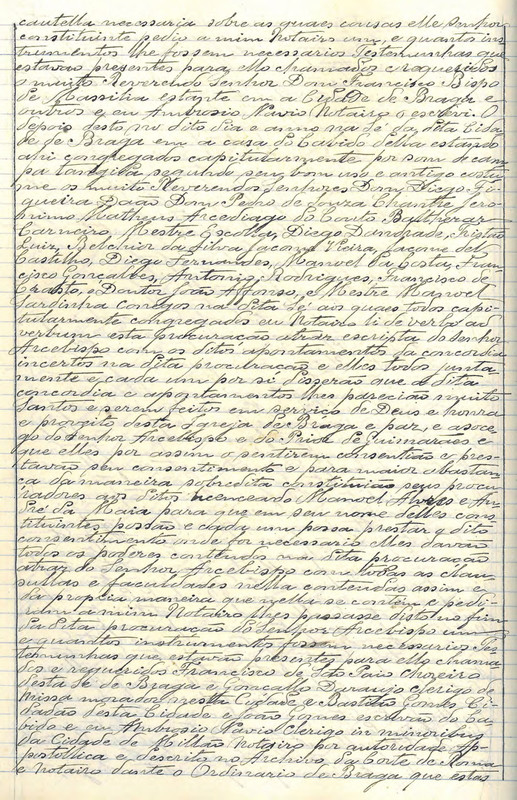 cautella necessaria sobre as quaes cousas elle Senhor
constituinte pedio a mim Notairo um, e quantos ins
trumentos lhe fossem necessarios Testemunhas que
estavão presentes para ello chamados e requeridos
o muito Reverendo Senhor Dom Francisco Bispo
de Massilia estante em a Cidade de Braga e
outros e eu Ambrosio Navio Notairo o escrevi. E
depois desto, no dito dia e anno na sé da dita Cida
de de Braga em a casa do Cavido della estando
ahi congregados capitularmente por som de cam
pa tangida segundo seu bom uso e antigo costu
me os muito Reverendos Senhores Dom Diogo Fi
gueira Daão Dom Pedro de Souza Chantre Jero
nimo Matheus Arcediago do Couto Balthezar
Carneiro, Mestre Escolla, Diego Dandrade, Tristão
Luiz, Belchior da Silva, Jacome Vieira, Jacome del
Castilho, Diego Fernandes, Manoel da Costa, Fran
cisco Goncalves, Antonio Rodrigues, Francisco de
Crasto, e Doutor João Affonso, e Mestre Manoel
Sardinha conegos na dita sé aos quaes todos capi
tularmente congregados eu Notairo li de verbo ad
verbum esta procuração atraz escripta do Senhor
Arcebispo com os ditos apontamentos da concordia
incertos na dita procuração e elles todos junta
mente e cada um por si disserão que a dita
concordia e apontamentos lhes parecião muito
Santos e serem feitos em serviço de Deus e honra
e proveito desta Igreja de Braga e paz, e asoce
go do Senhor Arcebispo e do Priol de Guimaraes e
que elles por assim o sentirem consentião e pres
tavão seu consentimento e para maior abastan
ça da maneira sobredita constituião seus procu
radores aos ditos Licenceado Manoel Alvres e An
dré da Maia para que em seu nome delles cons
tituintes possão e cada um possa prestar o dito
consentimento onde for necessario elles davão
todos os poderes contheudos na dita procuração
atraz do Senhor Arcebispo com todas as clau
sullas e faculdades nella conteudas assim e
da propria maneira que nella se contem e pedi
rão a mim Notairo lhes passasse disto no fim
da dita procuração do Senhor Arcebispo um
e quantos instrumentos fossem necessarios Tes
temunhas que estavão presentes para ello chama
dos e requeridos Francisco de São Paio Choreiro
desta Sé de Braga e Gonçalo Daraujo clerigo de
missa morador nesta Cidade e Bastião Gomes Ci
dadão desta Cidade e João Gomes escrivão do Ca
vido e eu Ambrosio Navio clerigo in minoribus
da Cidade de Millão Notairo por autoridade Ap
postollica e descrito no Archivo da Corte de Roma
e Notairo dante o Ordinario de Braga que estas